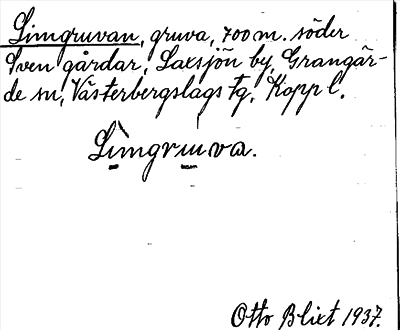 Limgruvan, gruva, 700 m. söder
Sven gårdar, Laxsjön by, Grangär-
de sn, Västerbergslags tg, Kopp l.
Lìmgruva.
Otto Blixt 1937.